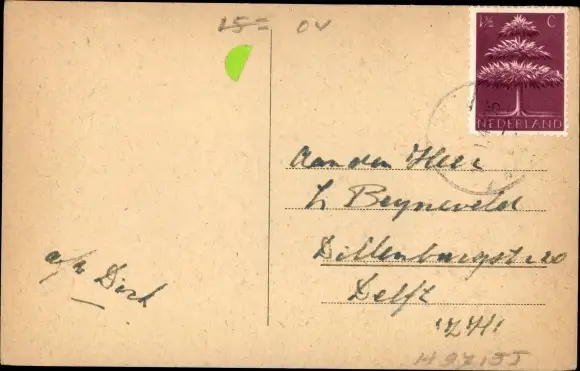 15= OV
1½ C
NEDERLAND
Aan den Heer
L Beyneveld
Dillenburgst 20
Delft
"ZH"
Dirk